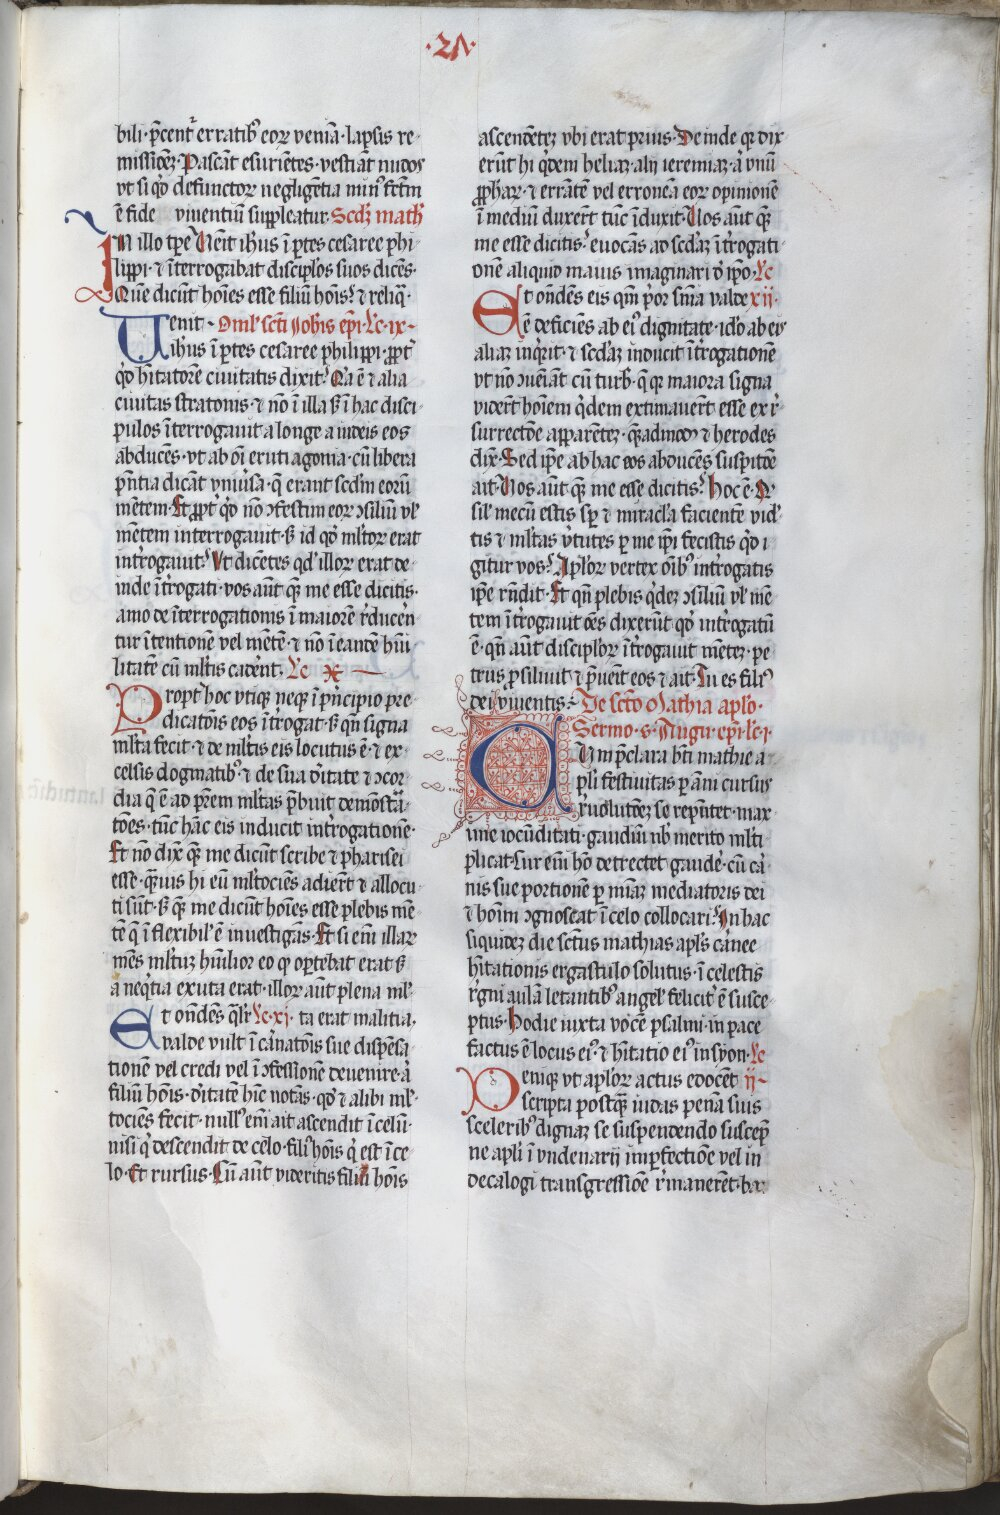 ·2Λ·
bili·p̄cent᷑ erratibꝰ eoꝝ veniā·lapsis re-
missiōeʒ·Pascāt esuriētes·vestiāt nudos
vt si qͥd defunctoꝝ negligētia minꝰ fc̄tm̄
ē fide viuentiū suppleatur. Scd̓ʒ math̓
IN illo tp̄e Uēit ih̓us ī p̄tes cesaree phi-
lippi·⁊ īterrogabat discip̄los suos dicēs·
Que dicūt hoīes esse filiū hoīs? ⁊ reliq̄·
Uenit· Oml̓ sc̄ti Joh̓is ep̄i·Lc̄·ix·
ih̓us ī p̄tes cesaree philippi·ꝓpt᷑
qͦd h̄itatorē ciuitatis dixit? Q̄a ē ⁊ alia
ciuitas stratonis·⁊ nō ī illa s̄ ī hac disci-
pulos īterrogauit a longe a iudeis eos
abducēs·vt ab oī eruti agonia·cū libera
p̄ntia dicāt vniūsa·q̄ erant scd̓m eorū
mētem·Et ꝓpt᷑ qͦd nō ꝯfestim eoꝝ ꝯsiliū vl̓
mētem interrogauit·s̄ id qͦd ml̓toꝝ erat
intr̓ogauit? Vt dicētes qd̓ illoꝝ erat de-
inde ītrogati·vos aūt quē me esse dicitis·
a mo de īterrogationis ī maiorē r̓ducen-
tur ītentionē vel mētē·⁊ nō ī eandē hūi-
litatē cū ml̓tis cadent. Lc̄ x
Propt̓ hoc vtiqꝫ neqꝫ ī pͥncipio pre-
dicatōis eos ītrogat·s̄ qn̄ signa
ml̓ta fecit·⁊ de ml̓tis eis locutus ē·⁊ ex-
celsis dogmatibꝰ·⁊ de sua d̓itate ⁊ ꝯcor-
dia que ē ad pr̄em ml̓tas p̄buit demōstra-
tōes·tūc hāc eis inducit intr̓ogationē·
Et nō dix̄ quē me dicūt scribe ⁊ pharisei
esse·q̄uis hi eū ml̓tociēs adierīt ⁊ allocu-
ti sūt·s̄ quē me dicūt hoīes esse plebis mē-
tē q̄ īflexibil̓ ē inuestigās·Et si em̄ illaꝝ
mēs ml̓tuʒ hūilior eo qͦ oportebat erat·s̄
a neqͥtia exuta erat·illoꝝ aūt plena ml̓-
Et ondēs ql̓r Lc̄·xj· ta erat malitia.
valde vult ī carnatōis sue dispēsa-
tionē vel credi vel ī ꝯfessionē deuenire·a
filiū hoīs·d̓itatē hīc notās·qͦd ⁊ alibi ml̓-
tociēs fecit·nullꝰ em̄ ait ascendit ī celū·
nisi qͥ descendit de celo·filiꝰ hoīs qͥ est ī ce-
lo·Et rursus·Cū aūt videritis filiū hoīs
ascendēteʒ vbi erat prius·Deinde qꝛ dix-
erūt hi qͥdem heliaʒ·alij ieremiaʒ·a vnū
ꝓphaꝝ·⁊ errātē vel erroneā eoꝝ opinionē
ī mediū duxert̄ tūc īduxit·Uos aūt quē
me esse dicitis? euocās ad scd̓aʒ ītrogati-
onē aliquid maius imaginari d̓ ip̄o·Lc̄
Et ondēs eis qm̄ pͥor sn̄ia valde xij·
ē deficiēs ab eiꝰ dignitate·ideo ab eis
aliaʒ inqͥrit·⁊ scd̓aʒ inducit ītrogationē
vt nō ꝯueniāt cū turb̓·q̄ qꝛ maiora signa
vidert̄ hoīem qͥdem extimauert̄ esse ex r̓-
surrectōe apparēteʒ·quēadmodū ⁊ herodes
dix̄·Sed ip̄e ab hac eos abducēs suspitōe
ait·Uos aūt quē me esse dicitis? Hoc ē·Q̓
sil̓ mecū estis sp̄ ⁊ miracl̓a facientē vid̓-
tis ⁊ ml̓tas v̓tutes p me ip̄i fecistis qͥd i-
gitur vos? Apl̓oꝝ vertex oībꝰ intr̓ogatis
ip̄e rn̄dit·Et qn̄ plebis qͥdeʒ ꝯsiliū vl̓ mē-
tem ītrogauit oēs dixerūt qͦd intr̓ogatū
ē·qn̄ aūt discipl̓oꝝ ītrogauit mēteʒ·pe-
trus prosiliuit ⁊ p̄uēit eos ⁊ ait·Tu es filiꝰ
dei viuentis· De sc̄to Mathia ap̄lo·
Sermo·s·Augu·ep̄i·lc̄·j·
CUm p̄clara bt̄i mathie a-
pl̓i festiuitas p āni cursus
r̓uolutōeʒ se rep̄ntet·max-
ime iocūditati·gaudiū nb̓ merito ml̓ti-
plicat·Cur em̄ hō detrectet gaudē·cū car-
nis sue portionē p māʒ mediatoris dei
⁊ hoīm ꝯgnoscat ī celo collocari? In hac
siquideʒ die sc̄tus mathias apl̓s carnee
h̄itationis ergastulo solutus·ī celestis
r̓gni aulā letantibꝰ angel̓ felicit̓ ē susce-
ptus·Hodie iuxta vocē psalmi·in pace
factus ē locus eiꝰ·⁊ h̄itatio eiꝰ in syon·Lc̄
Deniqꝫ vt apl̓oꝝ actus edocēt ij·
scripta postquā iudas penā suis
sceleribꝰ dignaʒ se suspendendo suscep̄
ne apl̓i ī vndenarij imꝑfectiōe vel in
decalogi transgressiōe r̓manerēt·bar